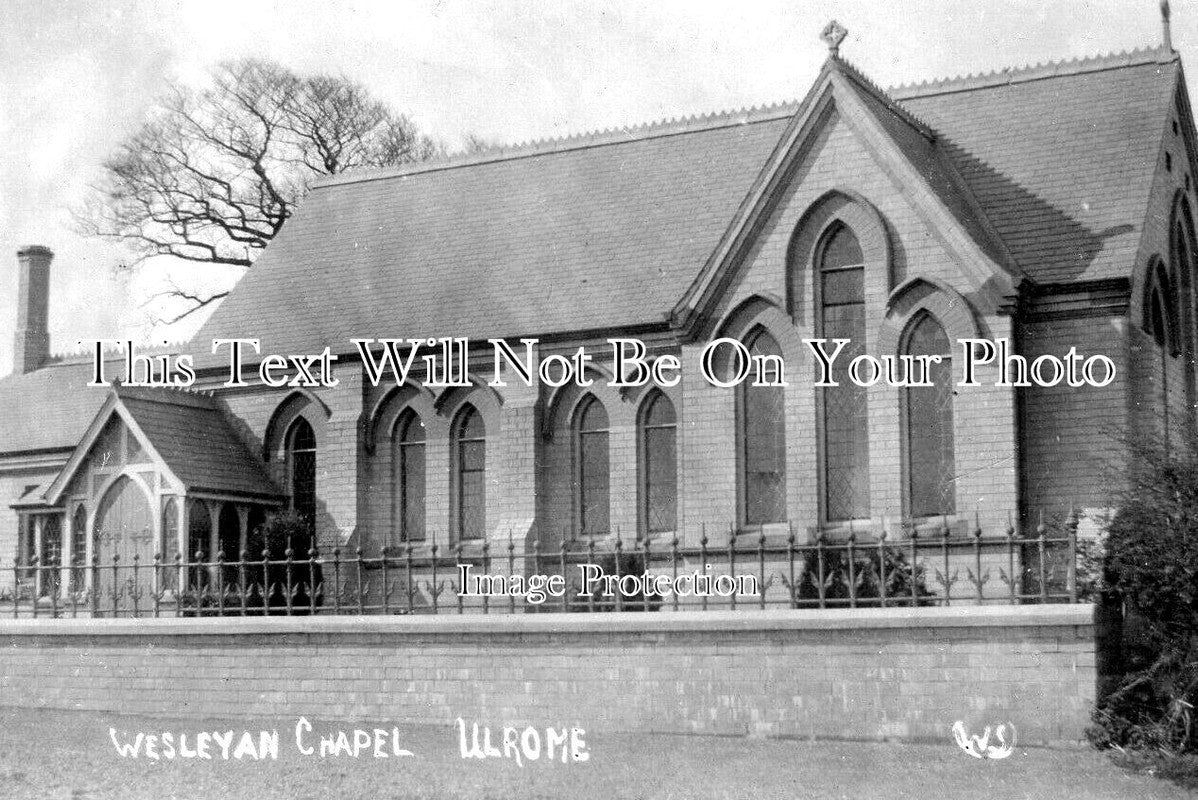 This Text Will Not Be On Your Photo
Image Protection
WESLEYAN CHAPEL ULROME WS